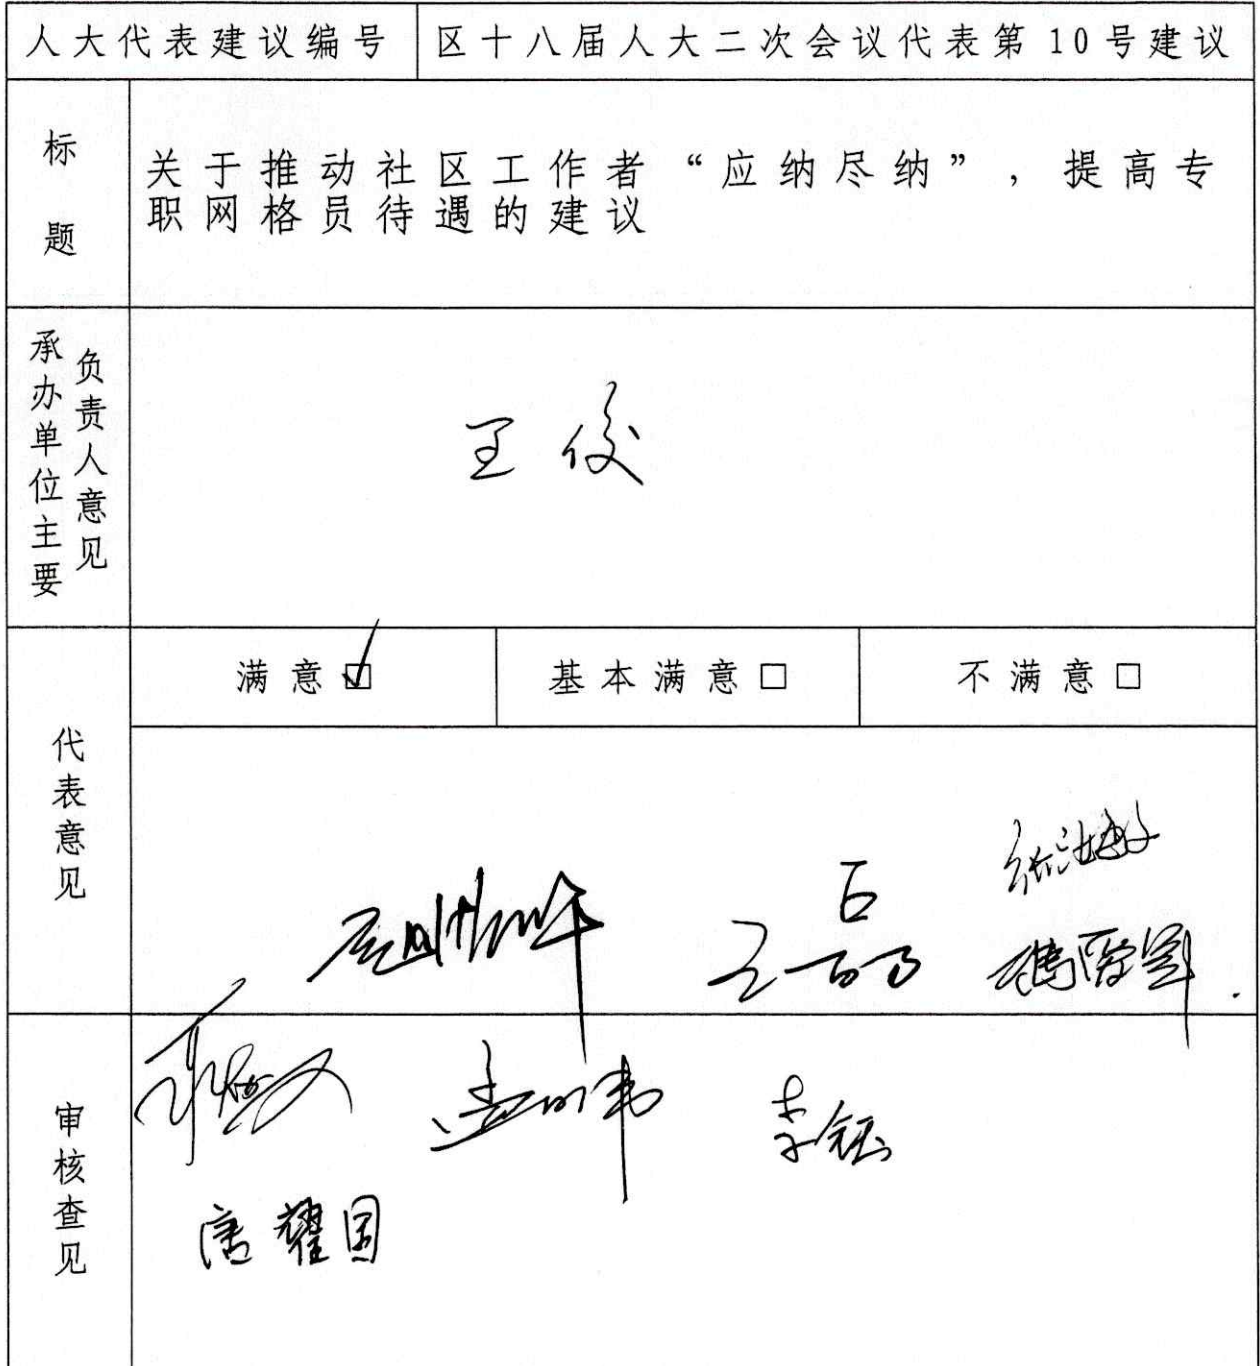 人大代表建议编号 区十八届人大二次会议代表第10号建议
标题
关于推动社区工作者“应纳尽纳”，提高专
职网格员待遇的建议
承办单位主要
负责人意见
王俊
满意☑ 基本满意□ 不满意□
代表意见
王磊
审核查见
李钰
唐耀国